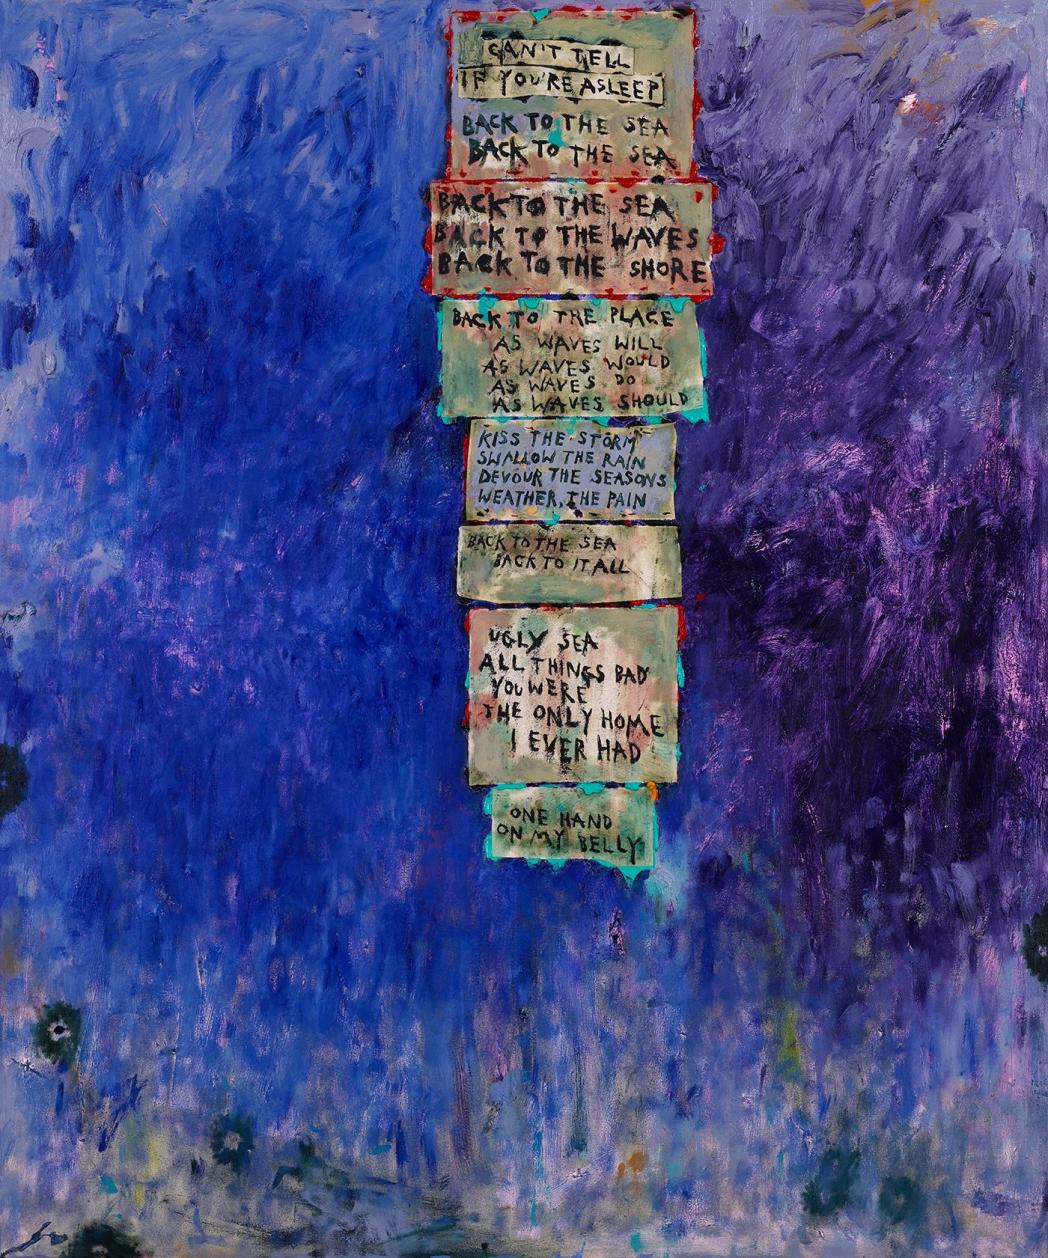 CAN'T TELL
IF YOU'RE ASLEEP
BACK TO THE SEA
BACK TO THE SEA
BACK TO THE SEA
BACK TO THE WAVES
BACK TO THE SHORE
BACK TO THE PLACE
AS WAVES WILL
AS WAVES WOULD
AS WAVES DO
AS WAVES SHOULD
KISS THE STORM
SWALLOW THE RAIN
DEVOUR THE SEASONS
WEATHER THE PAIN
BACK TO THE SEA
BACK TO IT ALL
UGLY SEA
ALL THINGS BAD
YOU WERE
THE ONLY HOME
I EVER HAD
ONE HAND
ON MY BELLY